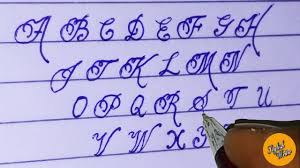 A B C D E F G H
I J K L M N
O P Q R S T U
V W X Z